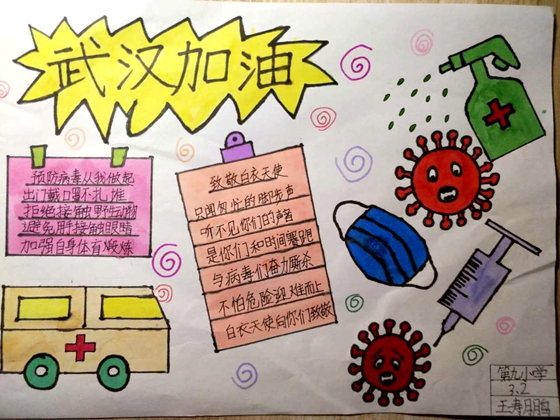 武汉加油
预防病毒从我做起
出门戴口罩不扎堆
拒绝接触野生动物
避免肝接触眼睛
加强自身体育煅炼
致敬白衣天使
只闻匆忙的脚步声
听不见你们的声音
是你们和时间赛跑
与病毒们奋力厮杀
不怕危险迎难而上
白衣天使向你们致敬
第九小学
3.2